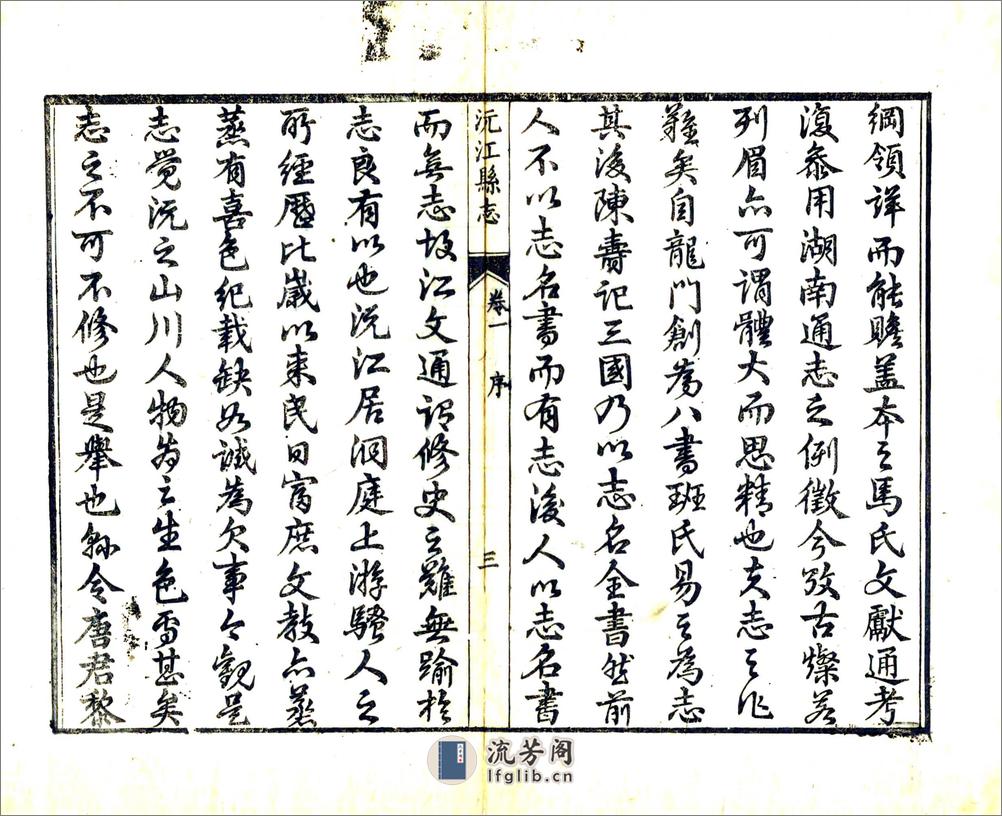 綱領詳而能贍蓋本之馬氏文獻通考
復叅用湖南通志之例徵今攷古燦若
列眉亦可謂體大而思精也夫志之作
難矣自龍門創爲八書班氏易之爲志
其後陳壽記三國乃以志名全書然前
人不以志名書而有志後人以志名書
沅江縣志
卷一
序
三
而無志故江文通謂修史之難無踰於
志良有以也沅江居洞庭上游騷人之
所經歷比歲以來民日富庶文教亦蒸
蒸有喜色紀載缺如誠爲欠事今觀是
志覺沅之山川人物爲之生色焉甚矣
志之不可不修也是舉也縣令唐君黎
流芳阁
lfglib.cn